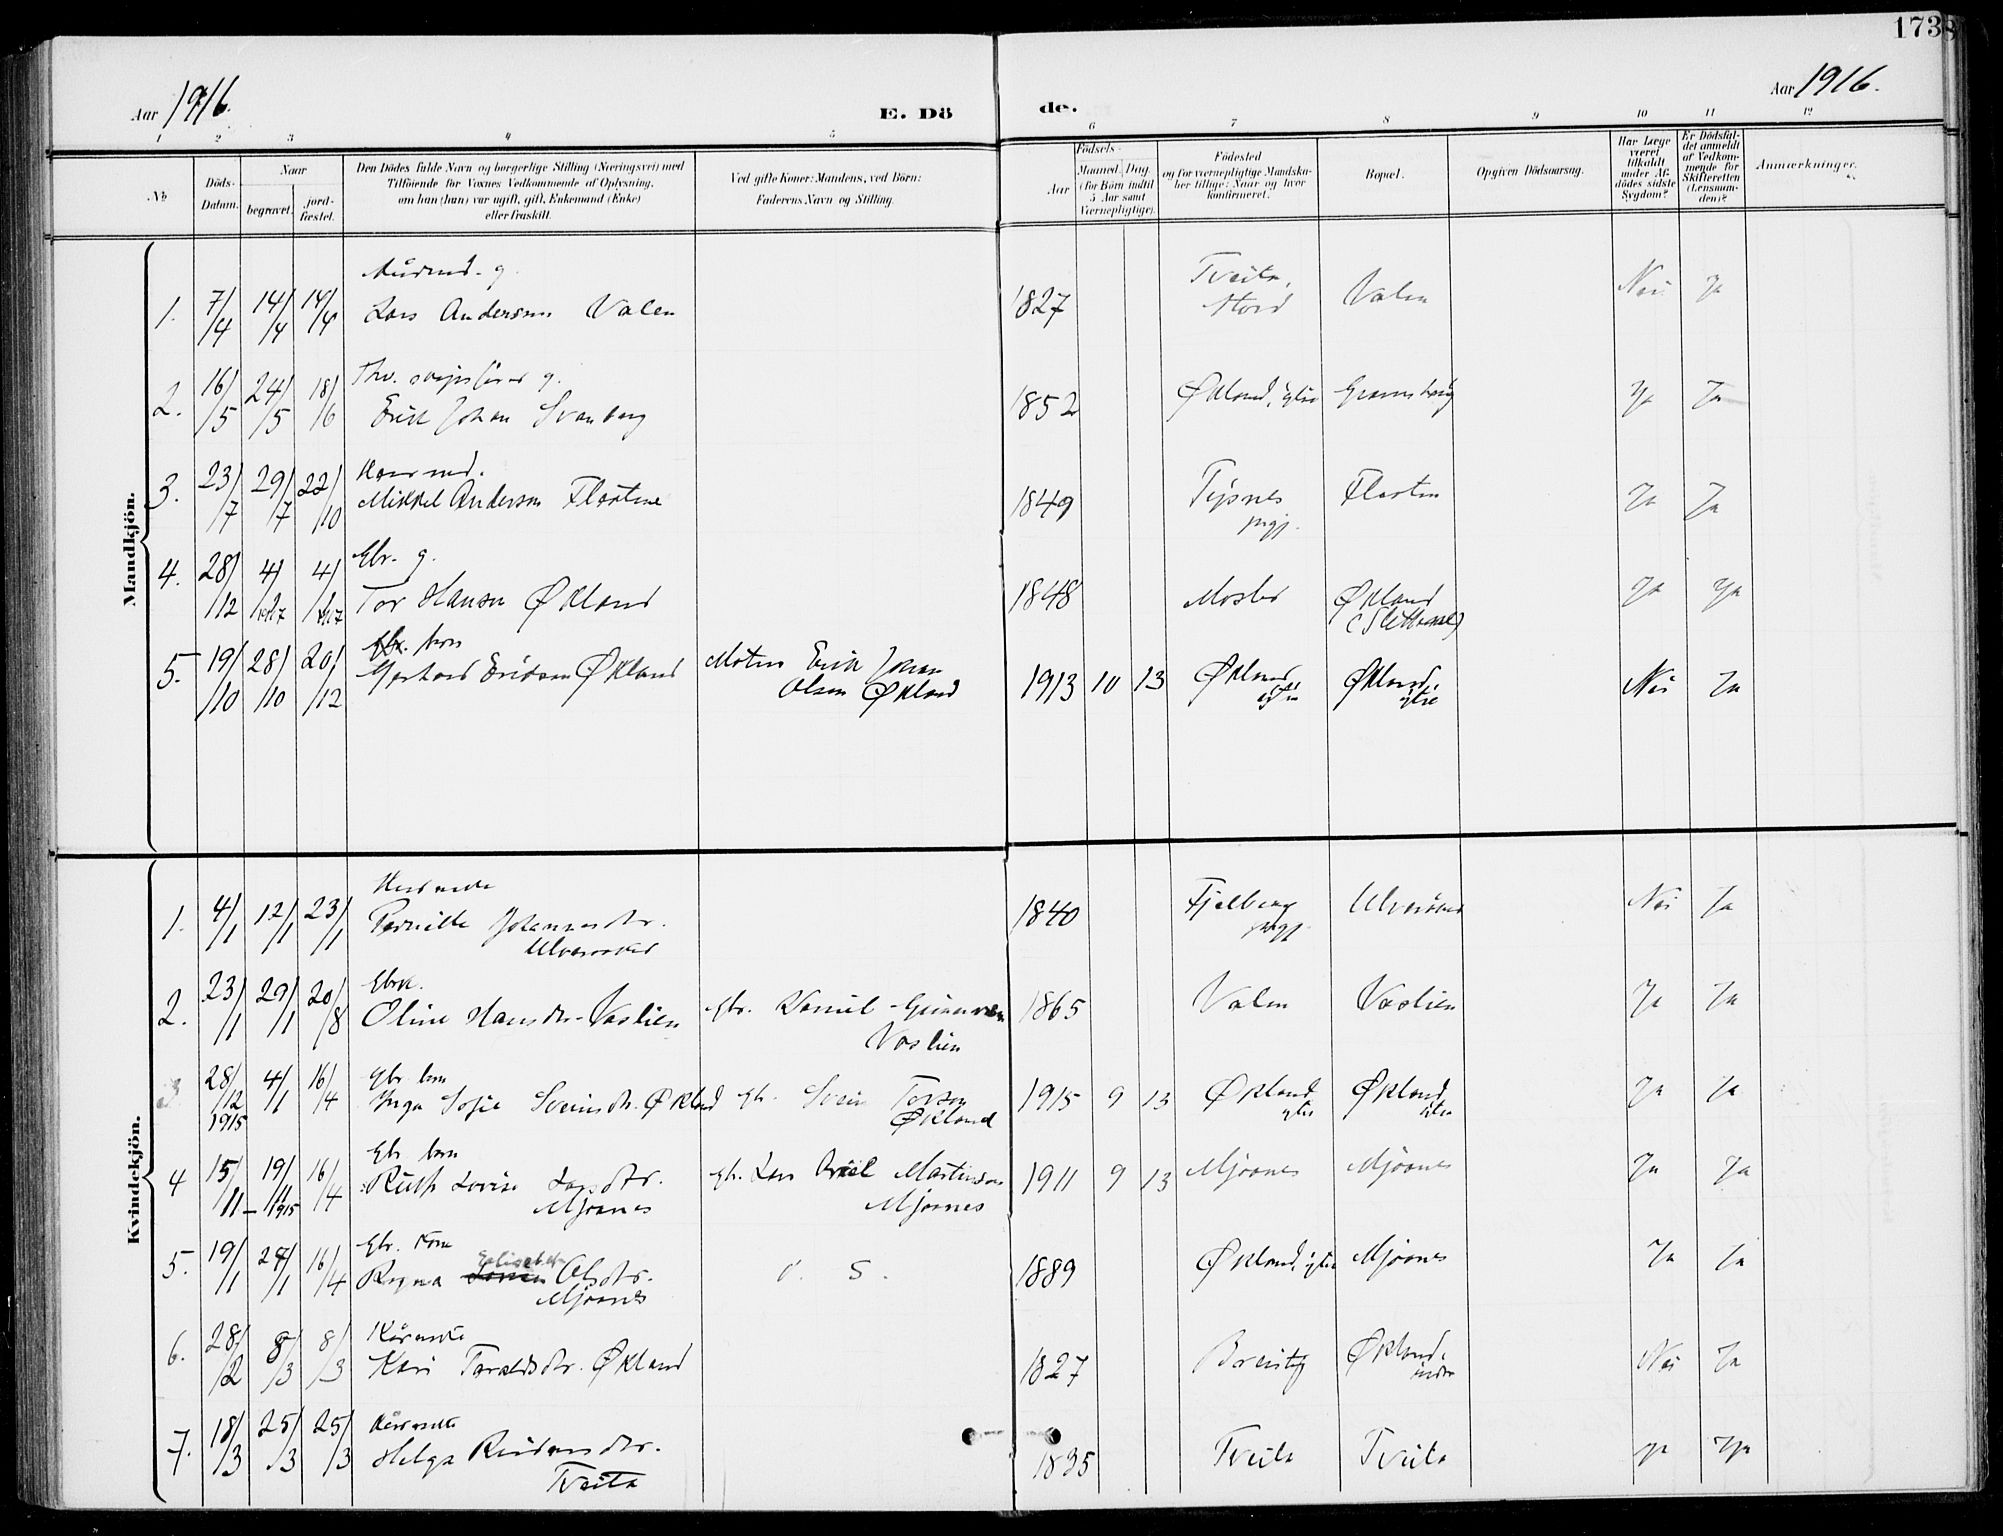 1738
Aar 1916.
E. Døde.
Aar 1916.
1 2 3 4 5 6 7 8 9 10 11 12
No.
Döds-Datum.
Naar
begravet.
jord-fæstet.
Den Dödes fulde Navn og borgerlige Stilling (Næringsvei) med
Tilföiende for Voxnes Vedkommende af Oplysning,
om han (hun) var ugift, gift, Enkemand (Enke)
eller fraskilt.
Ved gifte Koner: Mandens, ved Börn:
Faderens Navn og Stilling.
Födsels-
Aar
Maaned. Dag.
(for Börn indtil
5 Aar samt
Værnepligtige).
Födested
og for værnepligtige Mandska-
ber tillige: Naar og hvor
konfirmeret.
Bopæl.
Opgiven Dödsaarsag.
Har Læge
været
tilkaldt
under Af-
dödes sidste
Sygdom?
Er Dödsfal-
det anmeldt
af Vedkom-
mende for
Skifteretten
(Lensman-
den)?
Anmærkninger.
Mandkjön.
1. 7/4 14/4 14/4 Lars Andersen Valen 1827 Tveita, Stord Valen Nei Ja
2. 16/5 24/5 18/6 g. Erik Johan Svanberg 1852 Økland, ytre Ja Ja
3. 23/7 29/7 22/10 Mikkel Andersen Flaaten 1849 Tysnes prgj. Flaaten Ja Ja
4. 28/12 4/1 1917 4/1 1917 Gbr. g. Tor Hansen Økland 1848 Moster Økland Ja Ja
5. 19/10 28/10 20/12 barn Gerhard Eriksen Økland Erik Johan Olsen Økland 1913 10 13 Økland, ytre Økland, ytre Nei Ja
Kvindekjön.
1. 4/1 12/1 23/1 Pernille Johannesdtr. Ulversøker 1840 Fjelberg prgj. Nei Ja
2. 23/1 29/1 20/8 Gbrk. Oline Hansdtr. Vaslien Gbr. Daniel Vaslien 1865 Valen Vaslien Ja Ja
3 28/12 1915 4/1 16/4 Gbr. barn Inga Sofie Sveinsdtr. Økland Gbr. Svein Torson Økland 1915 9 13 Økland ytre Økland ytre Ja Ja
4 15/11 19/11 1915 16/4 Gbr barn Ruth Lovise Larsdtr. Mjøanes Gbr. Lars Martinson Mjøanes 1911 9 13 Mjøanes Mjøanes Ja Ja
5. 19/1 27/1 16/4 Gbr. kone Ragna Elisabeth Olsdtr. Mjøanes d. S. 1889 Økland, ytre Mjøanes Ja Ja
6. 28/2 8/3 8/3 Kaarenke Kari Taraldsdtr. Økland 1827 Økland, indre Nei Ja
7. 18/3 25/3 25/3 Helga Tveita 1835 Tveita Tveita Ja Ja